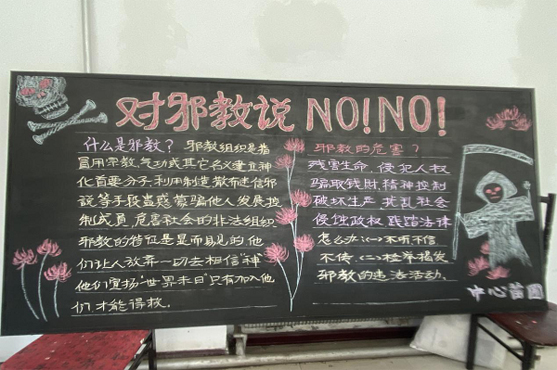 对邪教说NO!NO!
什么是邪教? 邪教组织是指
冒用宗教、气功或其它名义建立神
化首要分子,利用制造、散布迷信邪
说等手段蛊惑、蒙骗他人发展控
制成员,危害社会的非法组织
邪教的特征是显而易见的,他
们让人放弃一切去相信"神"
他们宣扬"世界末日"只有加入他
们,才能得救。
邪教的危害?
残害生命,侵犯人权
骗取钱财 精神控制
破坏生产 扰乱社会
侵蚀政权 践踏法律
怎么办:(一)不听不信
不传 (二)检举揭发
邪教的违法活动.
中心苗圃